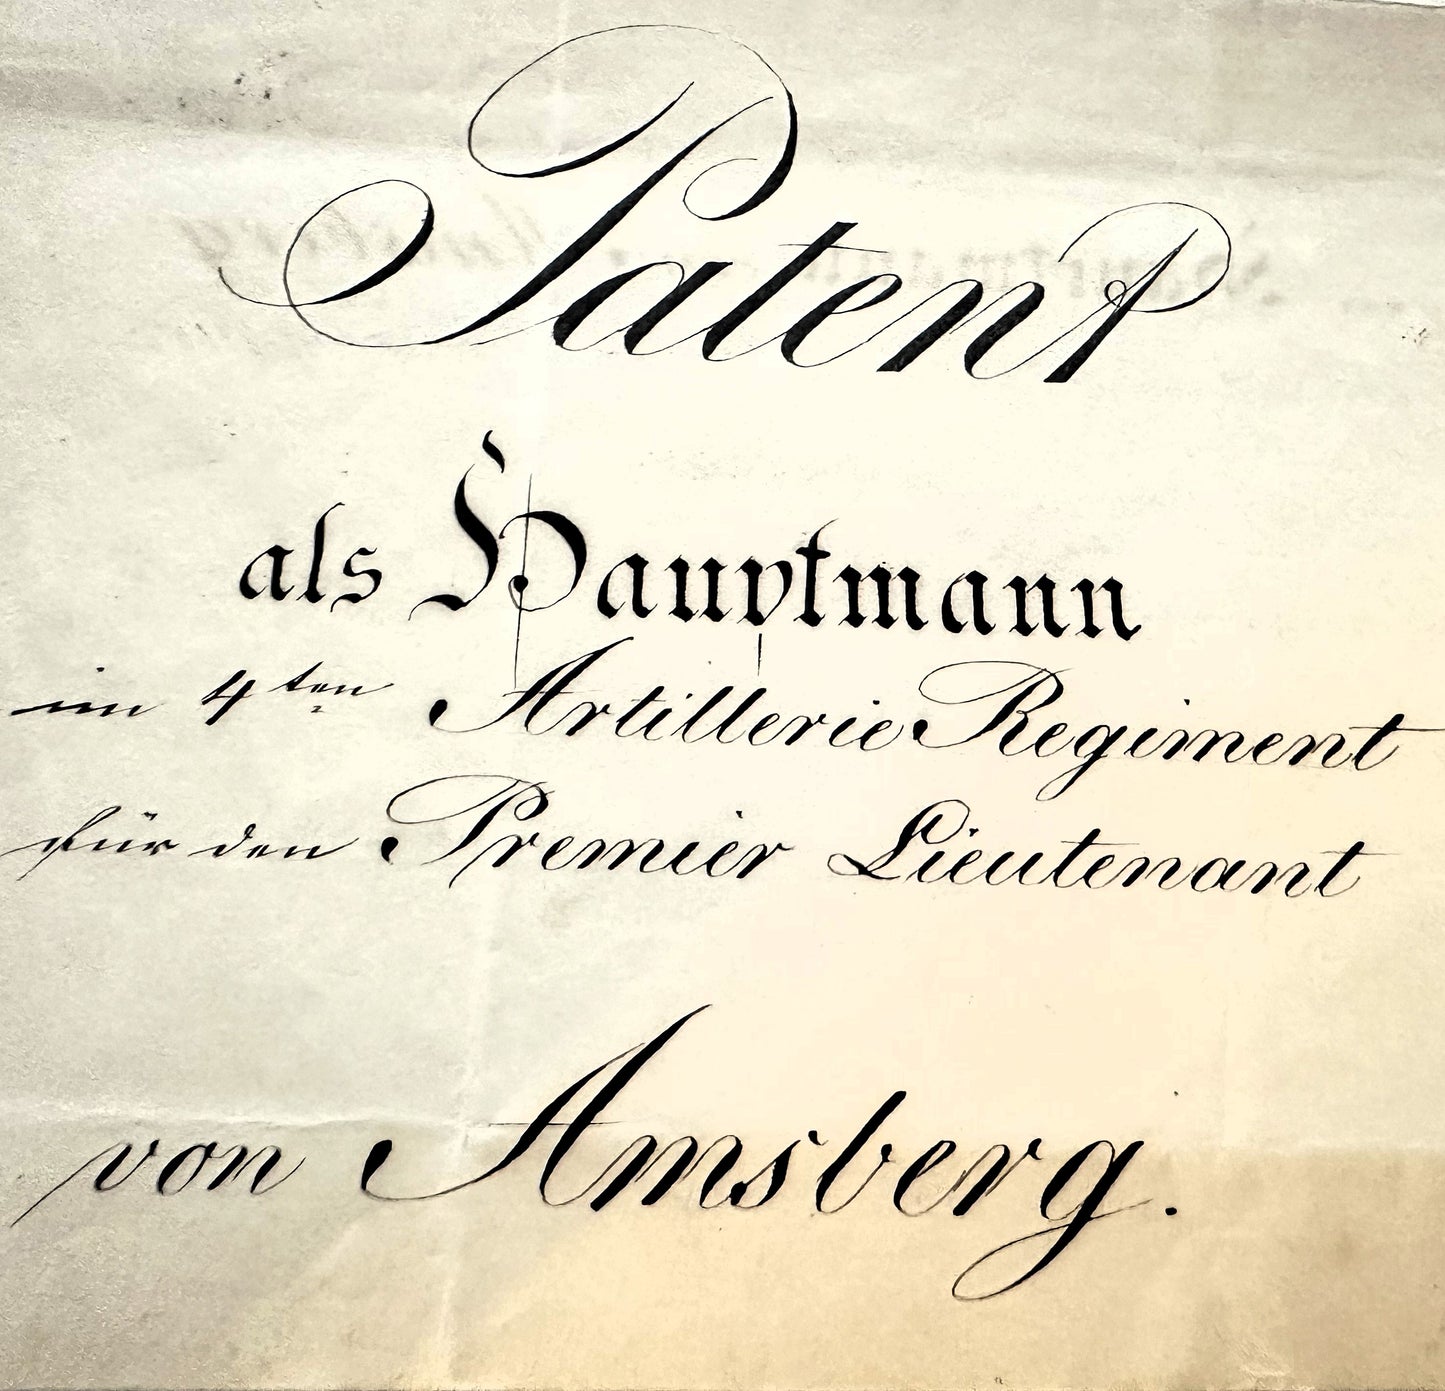 Patent
als Hauptmann
im 4ten Artillerie Regiment
für den Premier Lieutenant
von Amsberg.